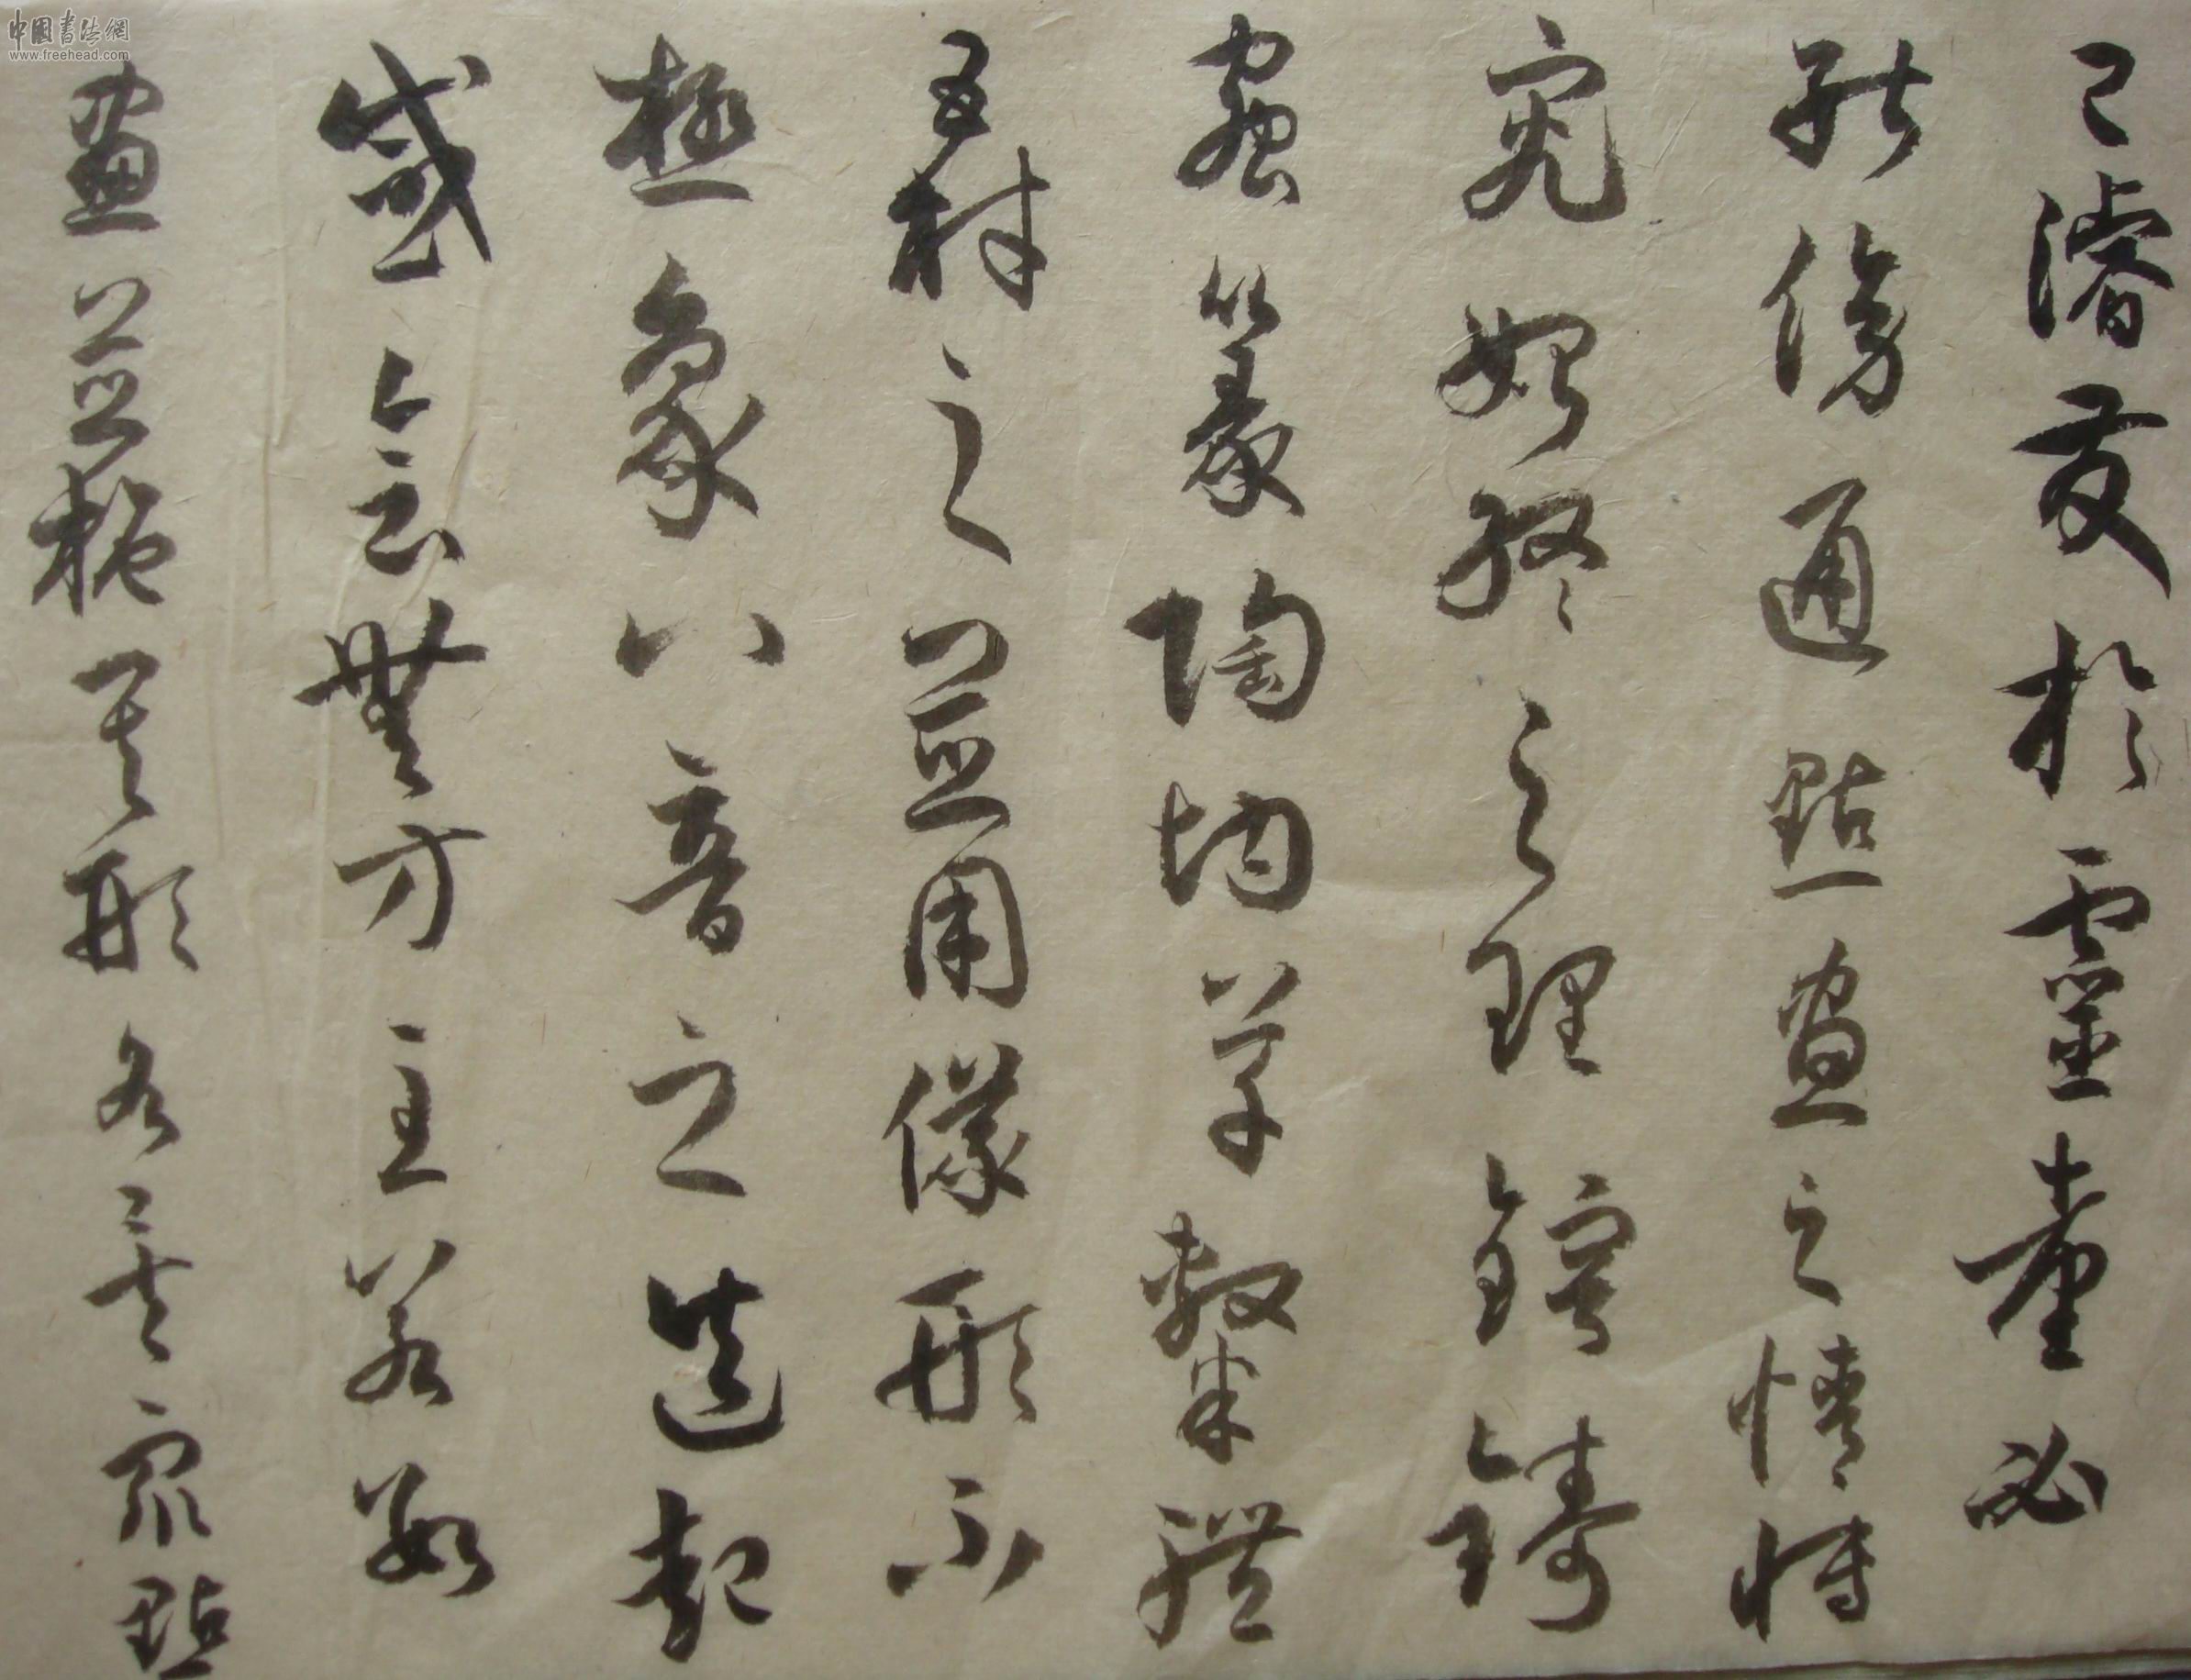 中國書法網
www.freehead.com
己濬發於靈臺必
能傍通點畫之情博
究始終之理鎔鑄
蟲篆陶均草隸體
五材之並用儀形不
極象八音之迭起
感會無方至若數
畫並施其形各異眾點